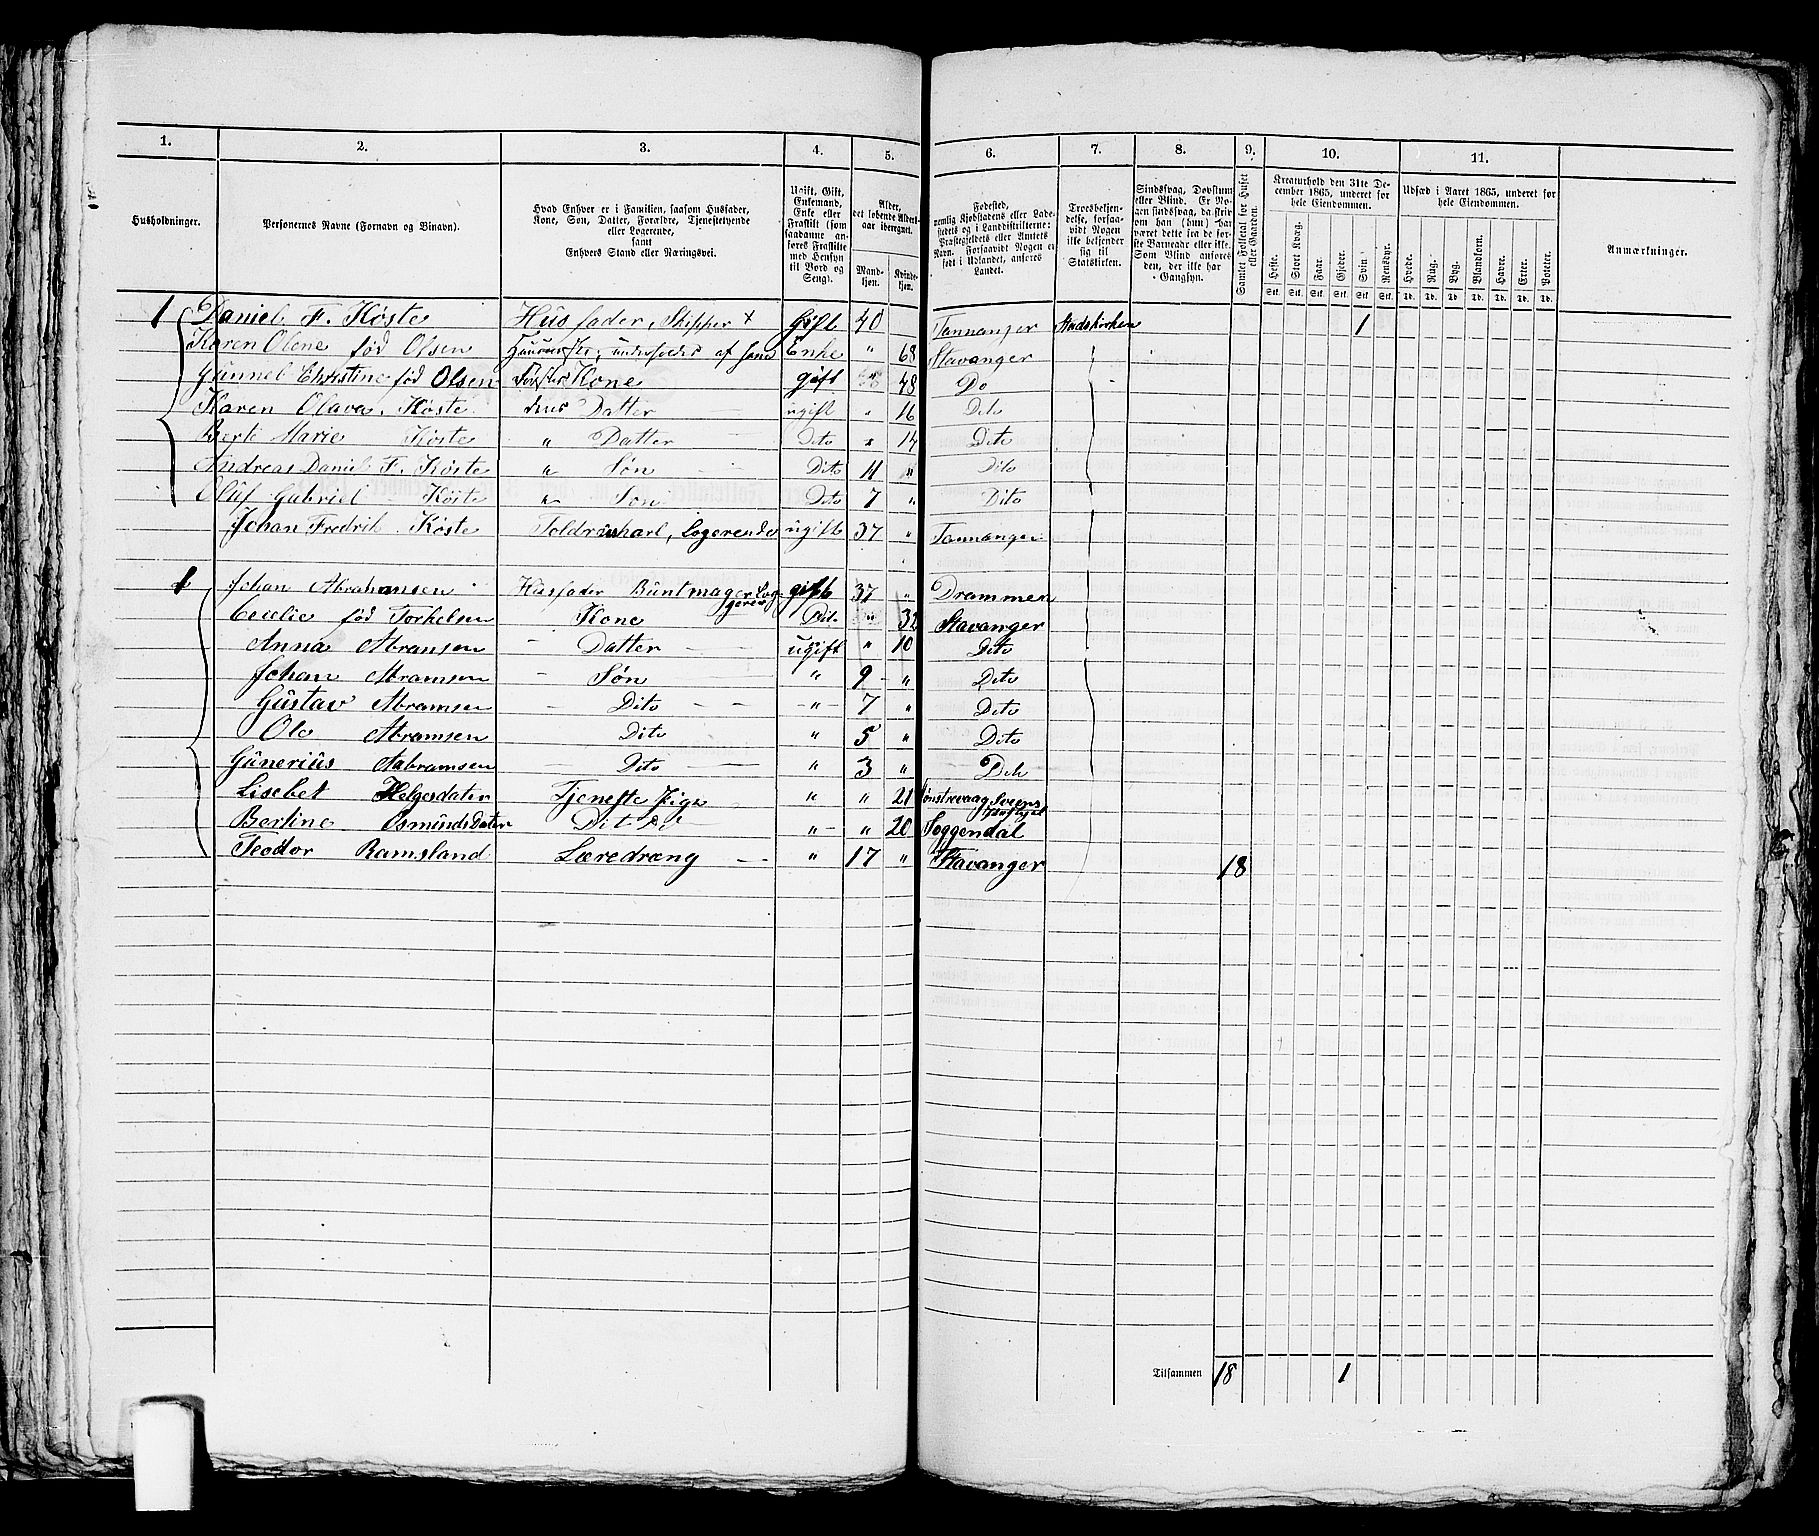 1. 2. 3. 4. 5. 6. 7. 8. 9. 10. 11.
Husholdninger.
Personernes Navne (Fornavn og Binavn).
Hvad Enhver er i Familien, saasom Husfader,
Kone, Søn, Datter, Forældre, Tjenestetyende
eller Logerende,
samt
Enhvers Stand eller Næringsvei.
Ugift, Gift,
Enkemand,
Enke eller
Fraskilt (som
saadanne an-
føres Fraskilte
med Hensyn
til Bord og
Seng).
Alder,
det løbende Alders-
aar iberegnet.
Mand-
kjøn.
Kvinde-
kjøn.
Fødested,
nemlig Kjøbstadens eller Lade-
stedets og i Landdistrikterne:
Præstegjeldets eller Annexets
Navn. Forsaavidt Nogen er
født i Udlandet, anføres
Landet.
Troesbekjen-
delse, forsaa-
vidt Nogen
ikke bekjender
sig til
Statskirken.
Sindssvag, Døvstum
eller Blind. Er No-
gen sindssvag, da skri-
ves om han (hun) har
været dette fra de før-
ste Barneaar eller ikke.
Som Blind anføres
den, der ikke har
Gangsyn.
Samlet Folketal for Huset
eller Gaarden.
Kreaturhold den 31te De-
cember 1865, underet for
hele Eiendommen.
Heste. Stort Kvæg. Faar. Gjeder. Svin. Rensdyr.
Stk. Stk. Stk. Stk. Stk. Stk.
Udsæd i Aaret 1865, underet for
hele Eiendommen.
Hvede. Rug. Byg. Blandkorn. Havre. Erter. Poteter.
Td. Td. Td. Td. Td. Td. Td.
Anmærkninger.
1 Daniel F. Köste Husfader, Skipper x Gift 40 Tannanger Stadskirchen 1
Karen Olene fød Olsen Enke " 68 Stavanger
Gunnel Christine fød Olsen Kone gift " 48 Do
Karen Olava Köste Datter ugift " 16 Dito
Berte Marie Köste " Datter Dito " 14 Dito
Andreas Daniel F. Köste " Søn Dito 11 " Dito
Oluf Gabriel Köste " Søn Dito 7 " Dito
Johan Fredrik Köste Toldrorskarl, Logerende ugift 37 " Tannanger
1 Johan Abrahamsen Husfader Buntmager Logerer gift 37 " Drammen
Cecelie fød Torkelsen Kone Dito " 32 Stavanger
Anna Abramsen Datter ugift " 10 Dito
Johan Abramsen Søn " 9 " Dito
Gustav Abramsen Dito " 7 " Dito
Ole Abramsen Dito " 5 " Dito
Gunerius Aabramsen Dito " 3 " Dito
Lisebet Helgesdater Tjeneste Pige " " 21
Bertine Osmundsdater Dito " " 20 Soggendal
Teodor Ramsland Læredræng " 17 " Stavanger 18
Tilsammen 18 1